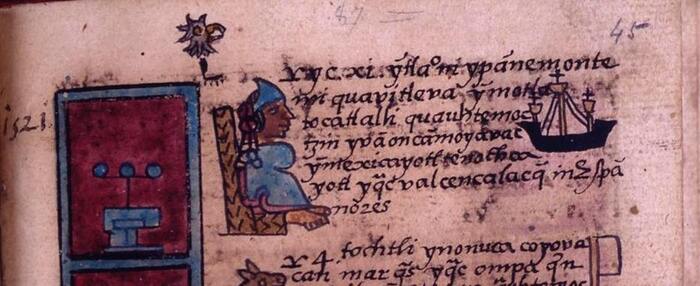 87
45
1521
yyc. xi. ỹtlaᵒni ypãnemonte
mi quavitleva ỹmotla
tocatlalli quauhtemoc
tzin yvã oncã moyavac
ỹmexicayotl tenochca
yotl yq̃c valcencalacq̃ spã
noles
Y 4. tochtli ynonuca coyova
can marq̃s yq̃c ompa q̃n